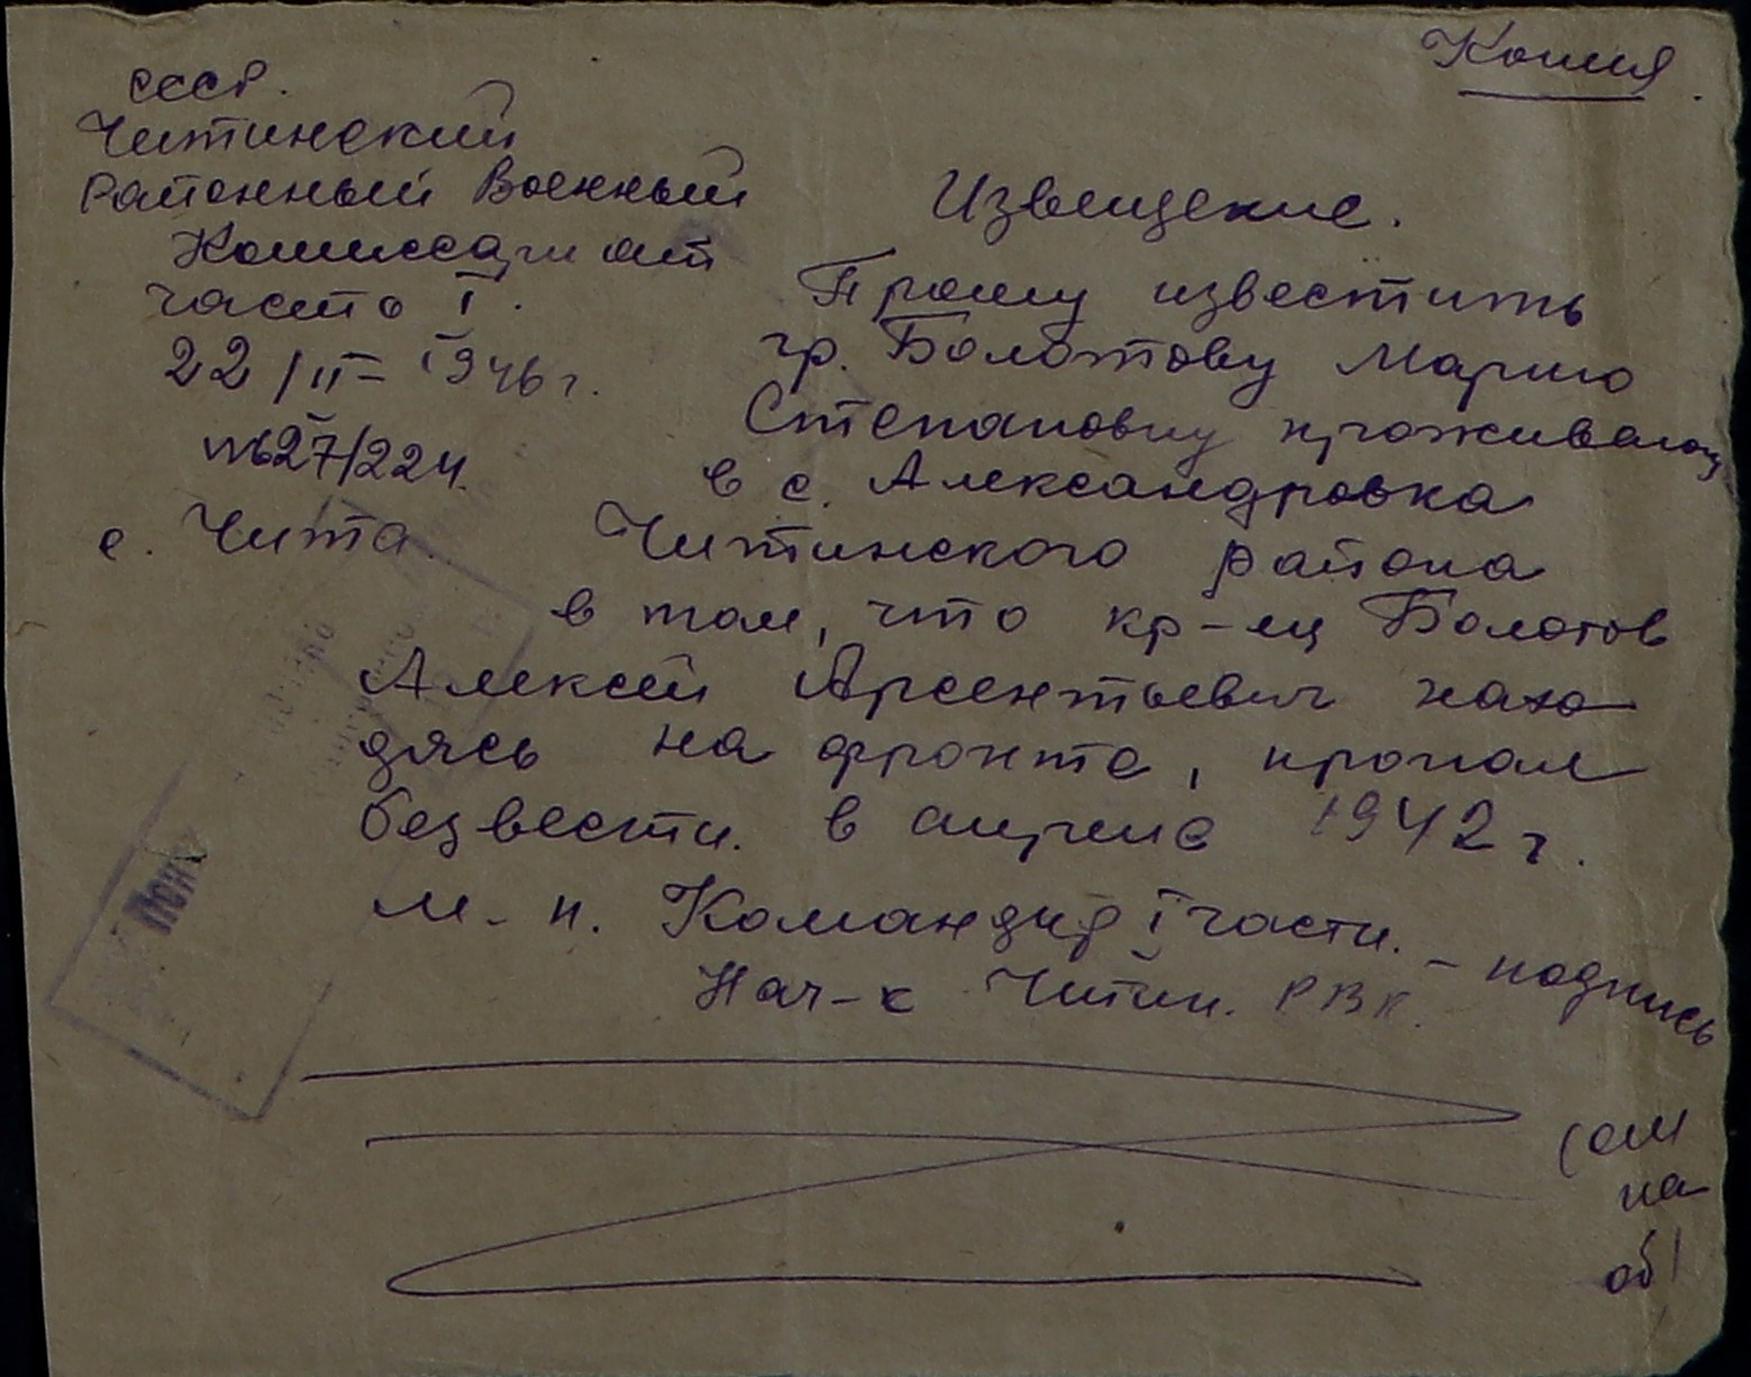 Копия
СССР.
Читинский
Районный Военный
Комиссариат
часть I.
22/II-1946 г.
№627/224.
с. Чита.
Извещение.
Прошу известить
гр. Болотову Марию
Степановну проживающ
в с. Александровка
Читинского района
в том, что кр-ец Болотов
Алексей Арсентьевич нахо
дясь на фронте, пропал
безвести. в апреле 1942 г.
м. п. Командир I части. - подпись
Нач-к Читин. РВК.
(см
на
об!